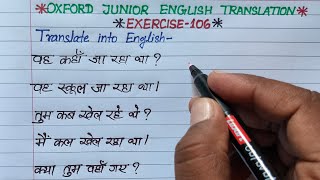 *OXFORD JUNIOR ENGLISH TRANSLATION*
*EXERCISE-106*
Translate into English-
वह कहाँ जा रहा था ?
वह स्कूल जा रहा था।
तुम कब खेल रहे थे ?
मैं कल खेल रहा था।
क्या तुम वहाँ गए ?